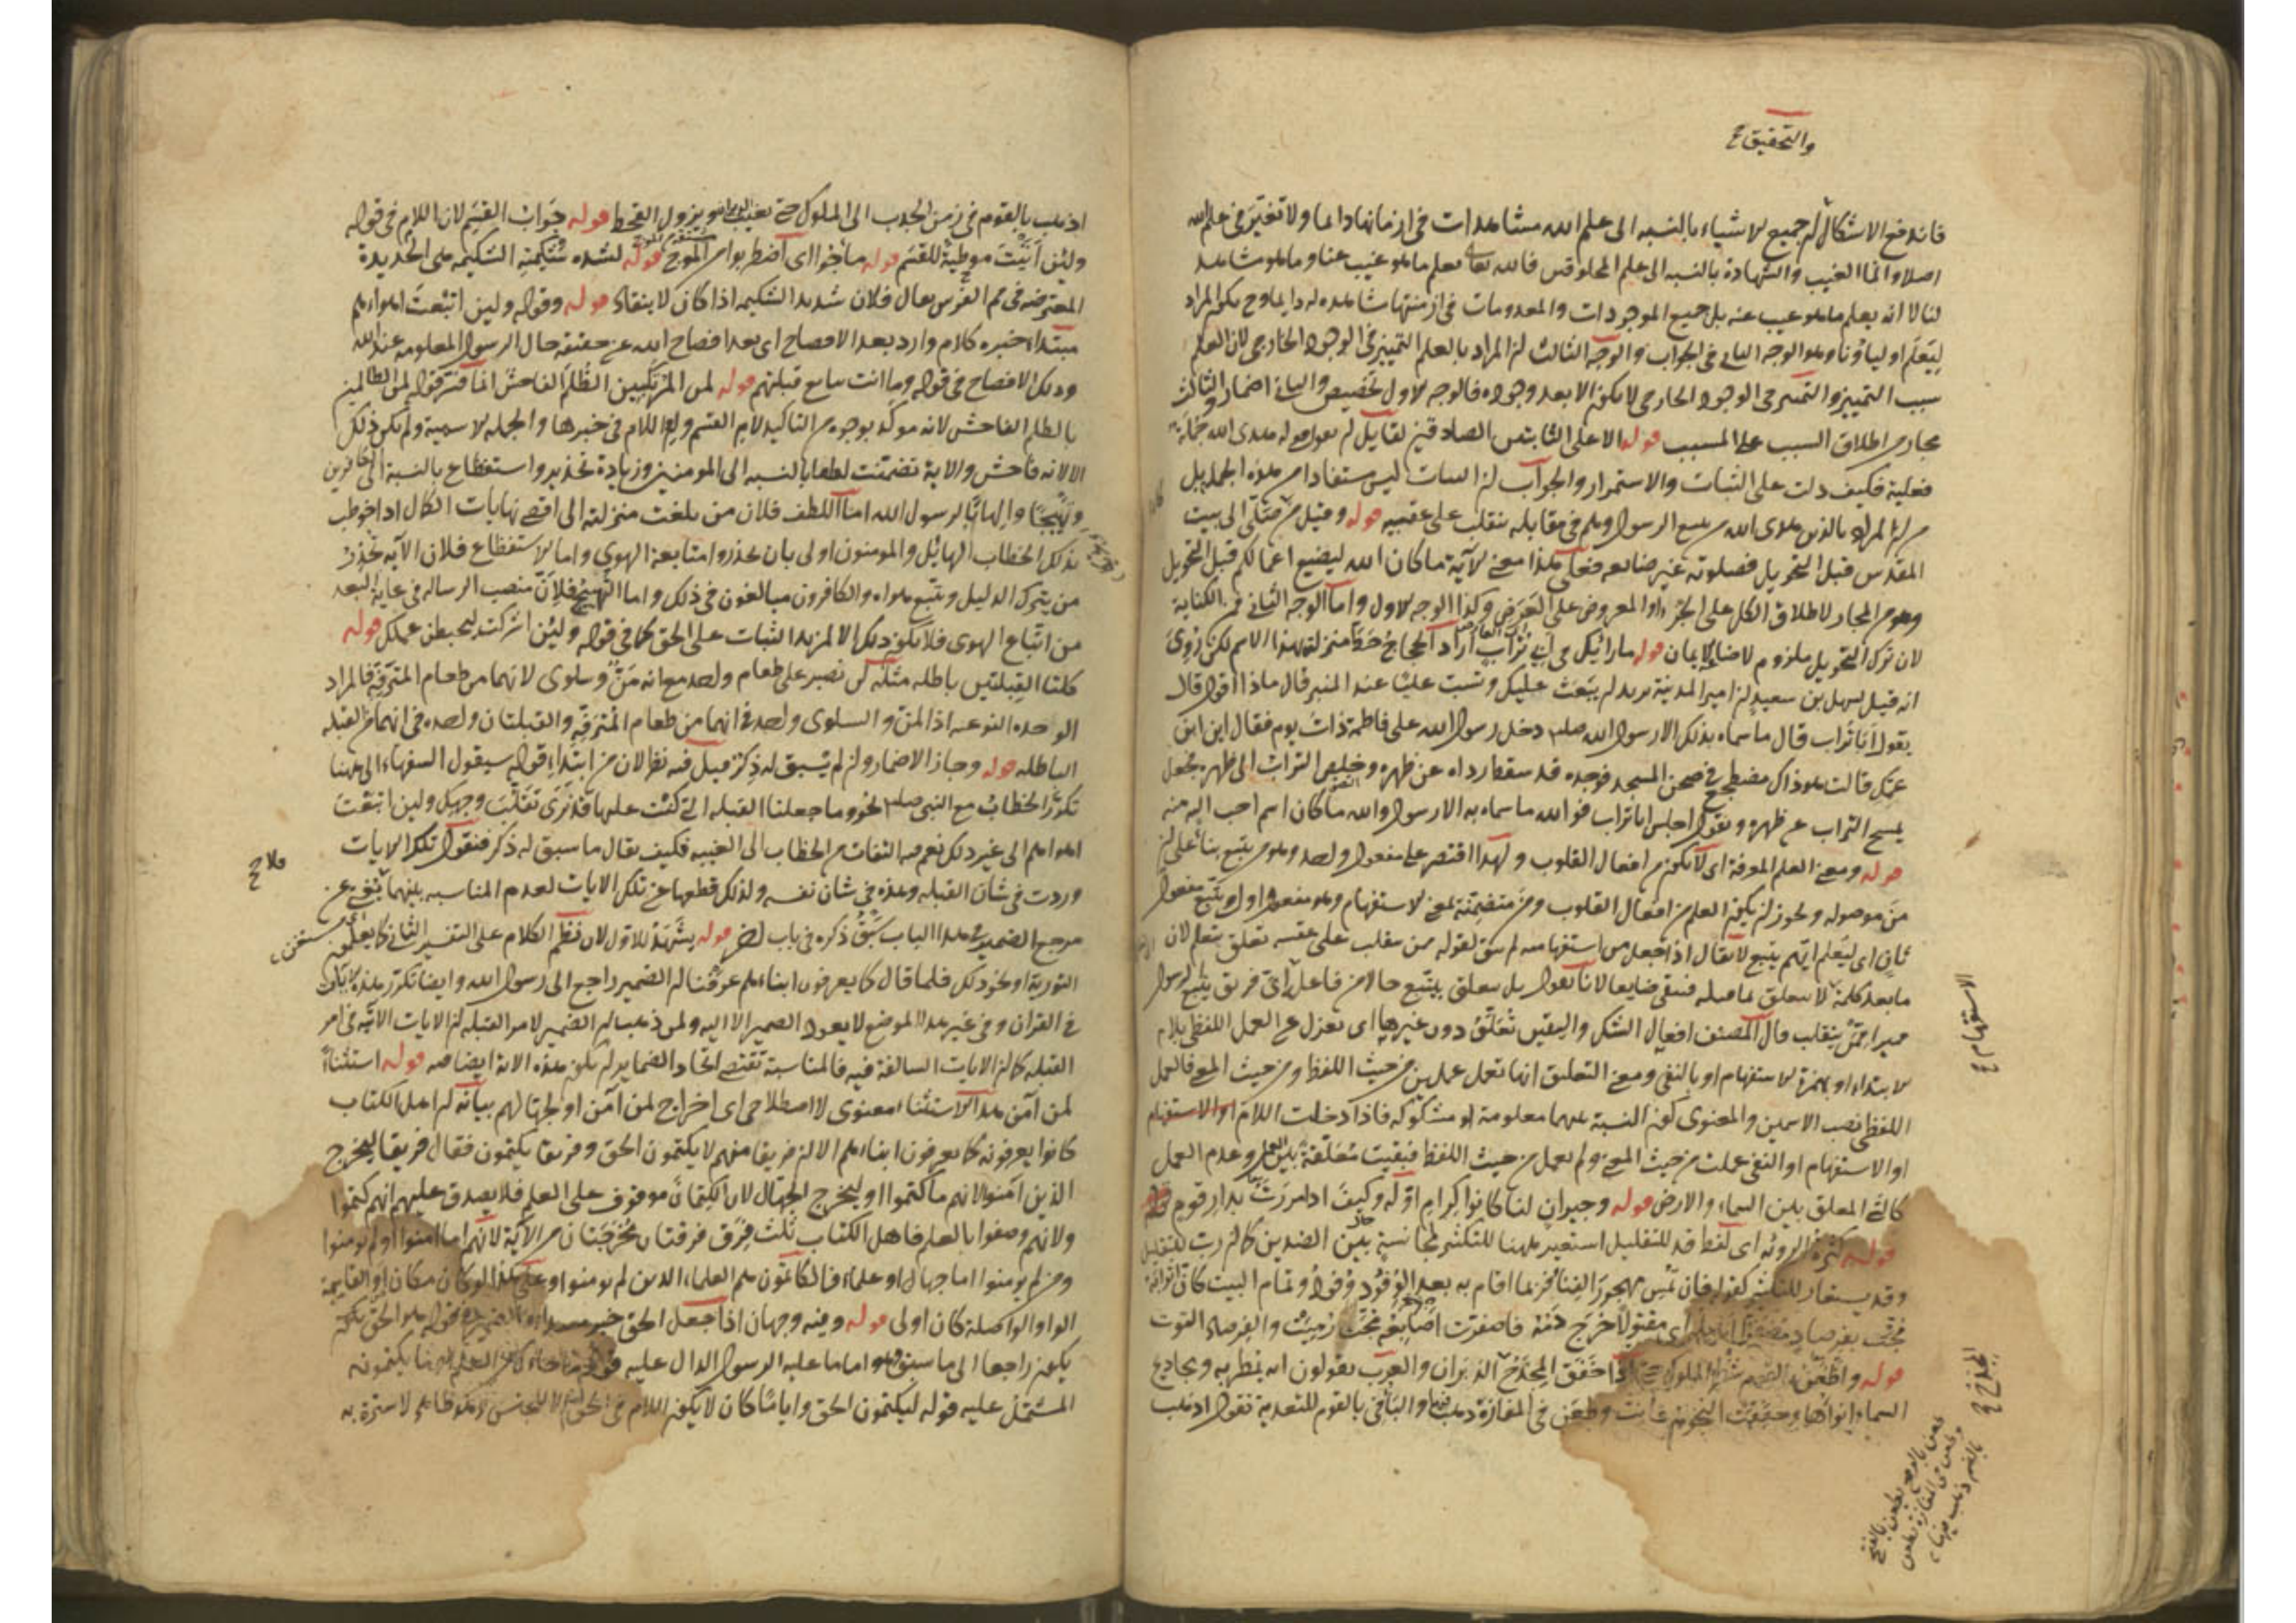 والتحقيق
فاندفع الاشكال لان جميع الاشياء بالنسبه الى علم الله مشاهدات فى ازمانها دائما ولا تغير فى علم الله
اصلا وانما الغيب والشهادة بالنسبه الى علم المخلوقين فالله تعالى يعلم ما هو غيب عنا وما هو مشاهد
لنا لا انه يعلم ما هو غيب عنه بل جميع الموجودات والمعدومات فى ازمنتها مشاهده له دايما وح يكون المراد
ليتعلم اولياؤنا وهو الوجه الثانى فى الجواب والوجه الثالث ان المراد بالعلم التمييز فى الوجود الخارجى لان العلم
سبب التمييز والتميز فى الوجود الخارجى لا يكون الا بعد وجوده فالوجه الاول تخصيص والثانى اضمار والثالث
مجاز من اطلاق السبب على المسبب قوله الا على الثابتين الصادقين لقايل ان يقول قوله هدى الله جملة
فعلية فكيف دلت على الثبات والاستمرار والجواب ان الثبات ليس مستفادا من هذه الجملة بل
من ان المراد بالذين هدى الله من يتبع الرسول وهم فى مقابله ينقلب على عقبيه قوله وقيل من صلى الى بيت
المقدس قبل التحويل فصلوته غير ضايعه فعلى هذا معنى الآية ما كان الله ليضيع اعمالكم قبل التحويل
وهو من المجاز لاطلاق الكل على الجزء او المعروض على العرض وكذا الوجه الاول واما الوجه الثانى فمن الكناية
لان ترك التحويل ملزوم لاضاعة الايمان قوله ما رائيك فى ابى تراب اراد الحجاج حط منزلته بهذا الاسم لكن روى
انه قيل لسهل بن سعيد ان امير المدينة يريد ان يبعث عليك وتسب عليا عند المنبر قال ماذا اقول قال
يقول ابا تراب قال ما سماه بذلك الا رسول الله صلم دخل رسول الله على فاطمة ذات يوم فقال اين ابن
عمك قالت هو ذاك مضطجع فى صحن المسجد فوجده قد سقط رداه عن ظهره وخلص التراب الى ظهره فجعل
يمسح التراب عن ظهره ويقول اجلس ابا تراب فوالله ما سماه به الا رسول والله ما كان اسم احب اليه منه
قوله ومعنى العلم المعرفة اى لا يكون من افعال القلوب ولهذا اقتصر على مفعول واحد وهو من يتبع بناء على ان
من موصوله ويجوز ان يكون العلم من افعال القلوب ومن متضمنة لمعنى الاستفهام وهو مفعول اول ويتبع مفعول
ثان اى ليعلم ايهم يتبع لا يقال اذا جعل من استفهاميه لم يبق لقوله ممن ينقلب على عقبيه تعلق بنعلم لان
ما بعد كلمة لا يتعلق بما قبله فيبقى ضايعا لانا نقول بل يتعلق بيتبع حالا من فاعل اى فريق يتبع الرسول
مميزا ممن ينقلب قال المصنف افعال الشك واليقين تعلق دون غيرها اى تعزل عن العمل اللفظى بلام
الابتداء او بهمزة الاستفهام او بالنفى ومعنى التعليق انها تعمل عملين من حيث اللفظ ومن حيث المعنى فالعمل
اللفظى نصب الاسمين والمعنوى كون النسبة بينهما معلومة او مشكوكه فاذا دخلت اللام او الاستفهام
او الاستفهام او النفى عملت من حيث المعنى ولم يعمل من حيث اللفظ فبقيت معلقة بين العمل وعدم العمل
كالشئ المعلق بين السماء والارض قوله وجيران لنا كانوا كرام اوله وكيف اذا مررت بدار قوم
قوله كثرة الرؤيه اى لفظ قد للتقليل استعير ههنا للتكثير لمجانسة بين الضدين كما ان رب للتقليل
وقد يستعار للتكثير كقوله فان تمس مهجور الفناء فربما اقام به بعد الوفود وفود وتمام البيت كان اثوابه
مجت بفرصاد اى مقتولا خرج دمه فاصفرت اصابعه مجت رميت والفرصاد التوت
قوله واطعن بالقوم شطر الملوك حتى اذا خفق المجدح الدبران والعرب يقولون انه يمطر به ومجاديح
السماء انواؤها وخفقت النجوم غابت وطعن فى المفازة ذهب فيها والباء فى بالقوم للتعدية تقول اذهب
الاستفهام
المجدح
اذهب بالقوم فى زمن الجدب الى الملوك حتى يغيب الدبران ويزول القحط قوله جواب القسم لان اللام فى قوله
ولئن اتيت موطية للقسم قوله ماجوا اى اضطربوا من الموج قوله لشده شكيمته الشكيمه هى الحديدة
المعترضه فى فم الفرس يقال فلان شديد الشكيمه اذا كان لا ينقاد قوله وقوله ولين اتبعت اهواءهم
مبتداء خبره كلام وارد بعد الافصاح اى بعد افصاح الله عن حقيقه حال الرسول المعلومه عند الله
وذلك الافصاح فى قوله وما انت بتابع قبلتهم قوله لمن المرتكبين الظلم الفاحش انما فسر قوله لمن الظالمين
بالظلم الفاحش لانه موكد بوجوه من التاكيد لام القسم واللام فى خبرها والجمله الاسمية ولم يكن ذلك
الا لانه فاحش والاية تضمنت لطفا بالنسبه الى المومنين وزيادة تحذير واستفظاع بالنسبة الى الكافرين
وتهييجا والهابا لرسول الله اما اللطف فلان من بلغت منزلته الى اقصى نهايات الكمال اذا خوطب
بذلك الخطاب الهائل والمومنون اولى بان يحذروا متابعة الهوى واما الاستفظاع فلان الآيه تحذر
من يترك الدليل ويتبع هواه والكافرون مبالغون فى ذلك واما التهييج فلان منصب الرساله فى غاية البعد
من اتباع الهوى فلا يكون ذلك الا لمزيد الثبات على الحق كما فى قوله ولين اشركت ليحبطن عملك قوله
كلتا القبلتين باطله مثله لن نصبر على طعام واحد مع انه من وسلوى لانهما من طعام المترفة فالمراد
الوحده النوعيه اذ المن والسلوى واحد فى انهما من طعام المترفه والقبلتان واحده فى انهما من القبله
الباطله قوله وجاز الاضمار وان لم يسبق له ذكر قيل فيه نظر لان من ابتداء قوله سيقول السفهاء الى ههنا
تكرر الخطاب مع النبى صلم نحو وما جعلنا القبله التى كنت عليها قد نرى تقلب وجهك ولين اتبعت
اهواءهم الى غير ذلك نعم فيه التفات من الخطاب الى الغيبه فكيف يقال ما سبق له ذكر فنقول تلك الايات
وردت فى شان القبله وهذه فى شان نفسه ولذلك قطعها عن تلك الايات لعدم المناسبه بينهما
مرجع الضمير فى هذا الباب سبق ذكره فى باب قوله يشهد للاول لان نظم الكلام على التفسير الثانى كما يعلمون
التورية او نحو ذلك فلما قال كما يعرفون ابناءهم عرفنا ان الضمير راجع الى رسول الله وايضا تكرر هذه الايات
فى القران وفى غير هذا الموضع لا يعود الضمير الا اليه ولمن ذهب الى ان الضمير لامر القبله ان الايات الاتيه فى امر
القبله كما ان الايات السالفة فيه فالمناسبة تقتضى اتحاد الضماير لم يكن هذه الاية ايضا فيه قوله استثناء
لمن آمن هذا الاستثناء معنوى لا اصطلاحى اى اخراج لمن آمن او لجهالهم بيانه ان اهل الكتاب
كانوا يعرفونه كما يعرفون ابناءهم الا ان فريقا منهم لا يكتمون الحق وفريقا يكتمون فقال فريقا ليخرج
الذين آمنوا لانهم ما كتموا او ليخرج الجهال لان الكتمان موقوف على العلم فلا يصدق عليهم انهم كتموا
ولانهم وصفوا بالعلم فاهل الكتاب ثلث فرق فرقتان مخرجتان من الآية لانهم اما امنوا او لم يومنوا
ومن لم يومنوا اما جهال او علماء فالكاتمون هم العلماء الذين لم يومنوا وعلى هذا لو كان مكان او الفاصلة
الواو الواصلة كان اولى قوله وفيه وجهان اذا جعل الحق خبر مبتداء
يكون راجعا الى ما سبق وهو اما ما عليه الرسول الدال عليه قوله
المشتمل عليه قوله ليكتمون الحق وايا ما كان لا يكون اللام فى الحق الا للجنس وهو ظاهر لا سترة به